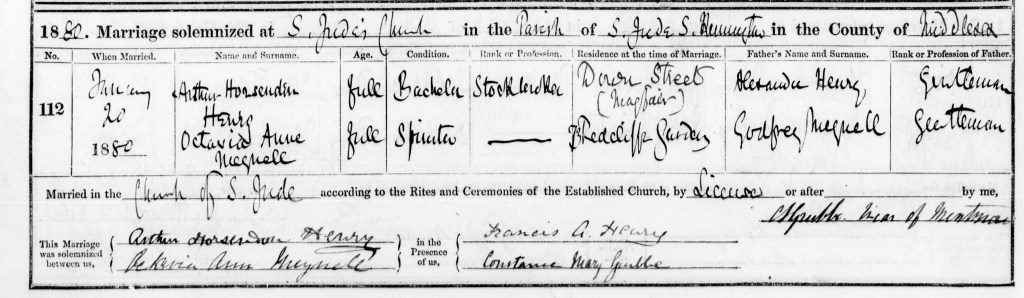 1880. Marriage solemnized at S. Jude's Church in the Parish of S. Jude S. Kensington in the County of Middlesex
No. When Married. Name and Surname. Age. Condition. Rank or Profession. Residence at the time of Marriage. Father's Name and Surname. Rank or Profession of Father.
112 January 20 1880 Arthur Horsendon Henry full Bachelor Stockbroker Down Street (Mayfair) Alexander Henry, Gentleman
Octavia Anne Meynell full Spinster — Redcliffe Gardens Godfrey Meynell Gentleman
Married in the Church of S. Jude according to the Rites and Ceremonies of the Established Church, by License or after by me,
Grubbe Vicar of Mentmore
This Marriage was solemnized between us, Arthur Horsendon Henry in the Presence of us, Francis A. Henry
Octavia Ann Meynell Constance Mary Grubbe